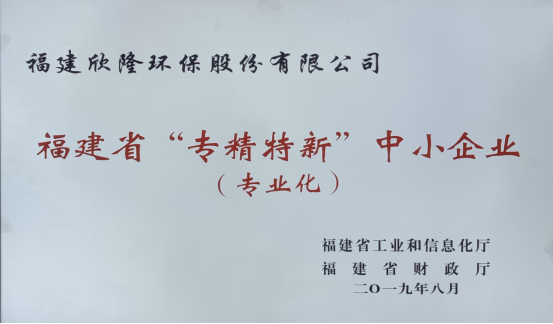 福建欣隆环保股份有限公司
福建省“专精特新”中小企业
（专业化）
福建省工业和信息化厅
福建省财政厅
二〇一九年八月